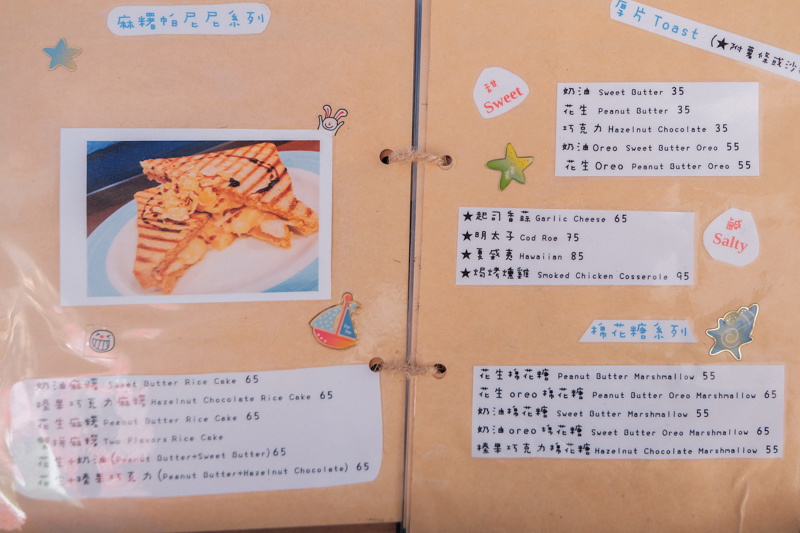 麻糬帕尼尼系列
奶油麻糬 Sweet Butter Rice Cake 65
榛果巧克力麻糬 Hazelnut Chocolate Rice Cake 65
花生麻糬 Peanut Butter Rice Cake 65
雙拼麻糬 Two Flavors Rice Cake
花生+奶油(Peanut Butter+Sweet Butter) 65
花生+榛果巧克力(Peanut Butter+Hazelnut Chocolate) 65
厚片 Toast (★附薯條或沙
甜
Sweet
奶油 Sweet Butter 35
花生 Peanut Butter 35
巧克力 Hazelnut Chocolate 35
奶油Oreo Sweet Butter Oreo 55
花生Oreo Peanut Butter Oreo 55
★起司香蒜 Garlic Cheese 65
★明太子 Cod Roe 75
★夏威夷 Hawaiian 85
★焗烤燻雞 Smoked Chicken Cosserole 95
鹹
Salty
棉花糖系列
花生棉花糖 Peanut Butter Marshmallow 55
花生oreo棉花糖 Peanut Butter Oreo Marshmallow 65
奶油棉花糖 Sweet Butter Marshmallow 55
奶油oreo棉花糖 Sweet Butter Oreo Marshmallow 65
榛果巧克力棉花糖 Hazelnut Chocolate Marshmallow 55